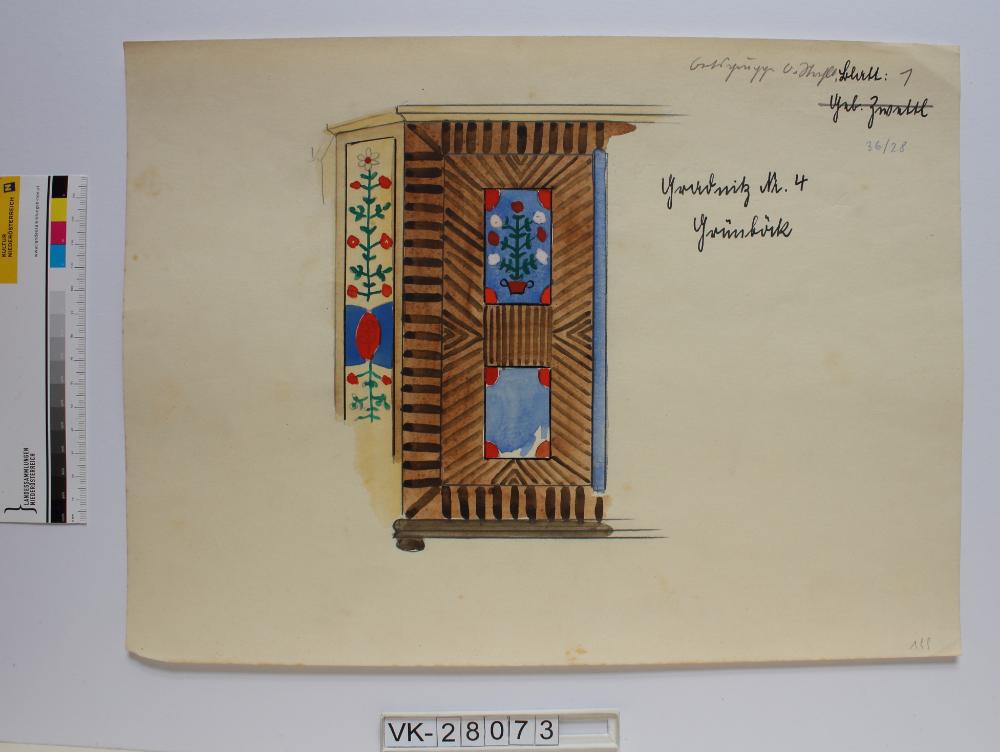 Blatt: 1
Geb. Zwettl
36/28
Gradnitz Nr. 4
Grünböck
KULTUR
NIEDERÖSTERREICH
www.landessammlungen-noe.at
LANDESSAMMLUNGEN
NIEDERÖSTERREICH
155
VK-28073